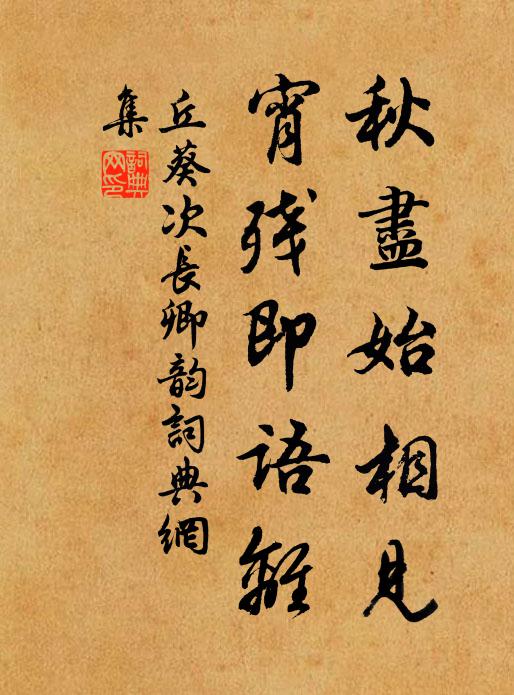 秋盡始相見
宵残即語離
丘葵次長卿韵詞典網
集
詞典
网印